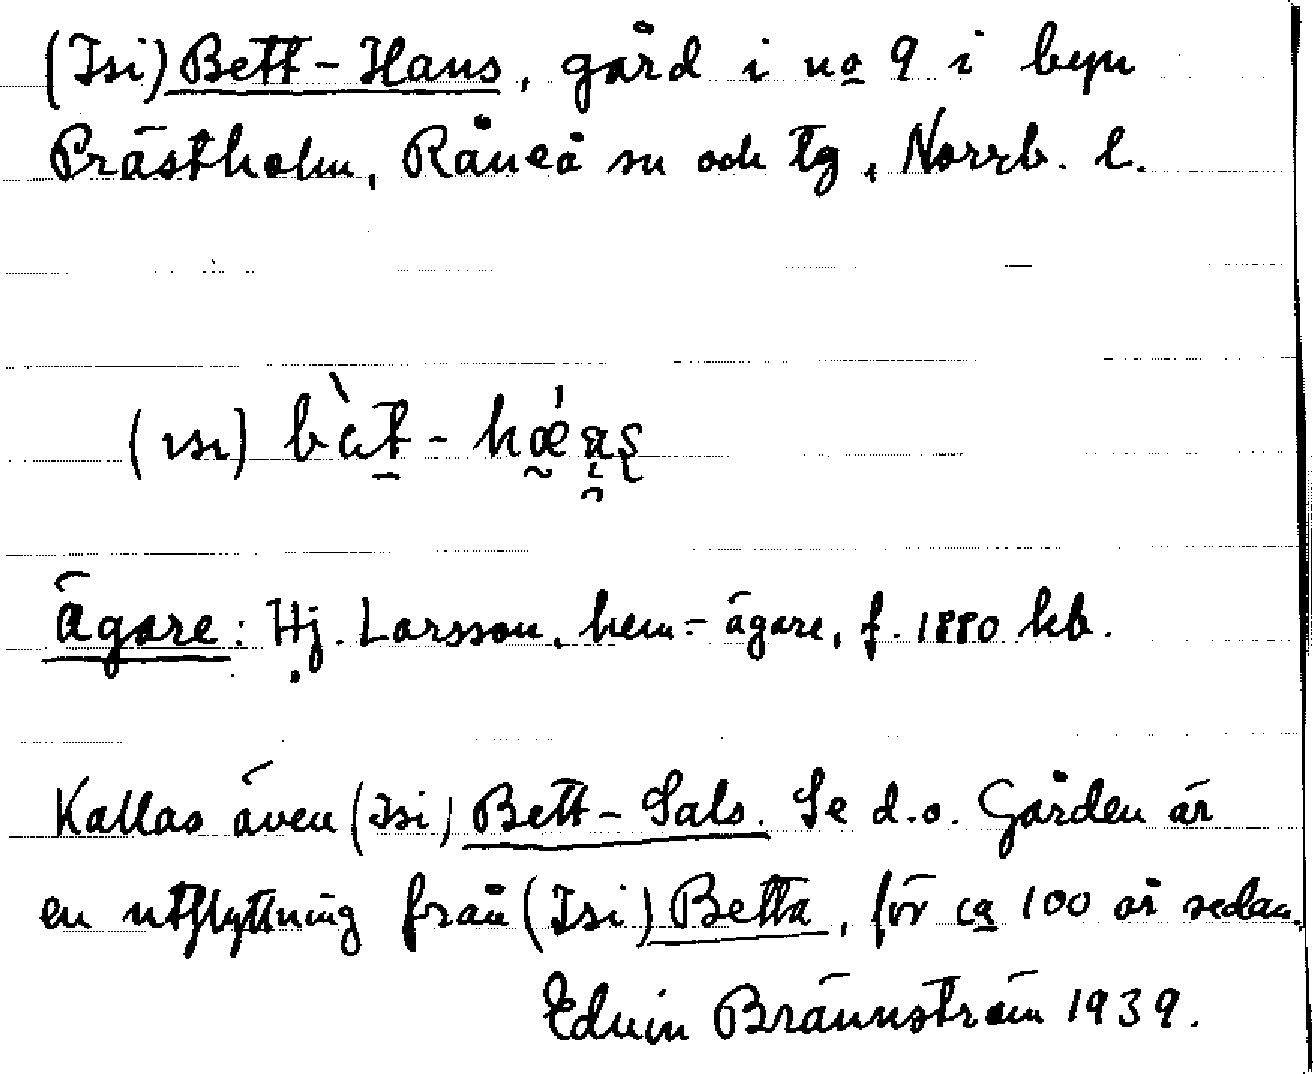 (Isi) Bett-Hans, gård i no 9 i byn
Prästholm, Råneå sn och tg, Norrb. l.
(ısı)
Ägare: Hj. Larsson, hem-ägare, f. 1880 kb.
Kallas även (Isi) Bett-Sals. Se d.o. Gården är
en utflyttning från (Isi) Betta, för ca 100 år sedan.
Edvin Brännström 1939.